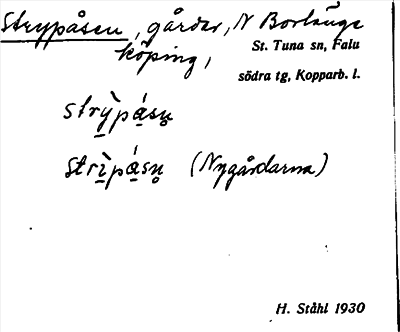 Strypåsen, gårdar, N Borlänge
köping, St. Tuna sn, Falu
södra tg, Kopparb. l.
strỳpá̱sn̥
strì̱pá̱sn̥ (Nygårdarna)
H. Ståhl 1930